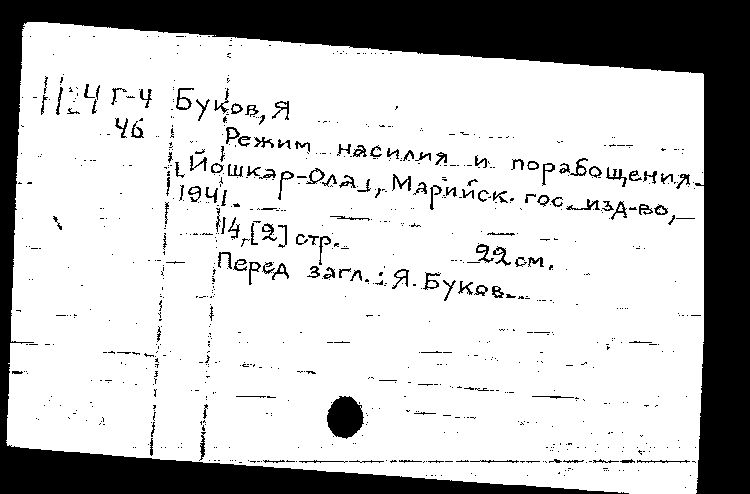 1124 Г-4 Буков, Я
46
Режим насилия и порабощения.
[Йошкар-Ола], Марийск. гос. изд-во,
1941.
14, [2] стр. 22 см.
Перед загл.: Я. Буков.